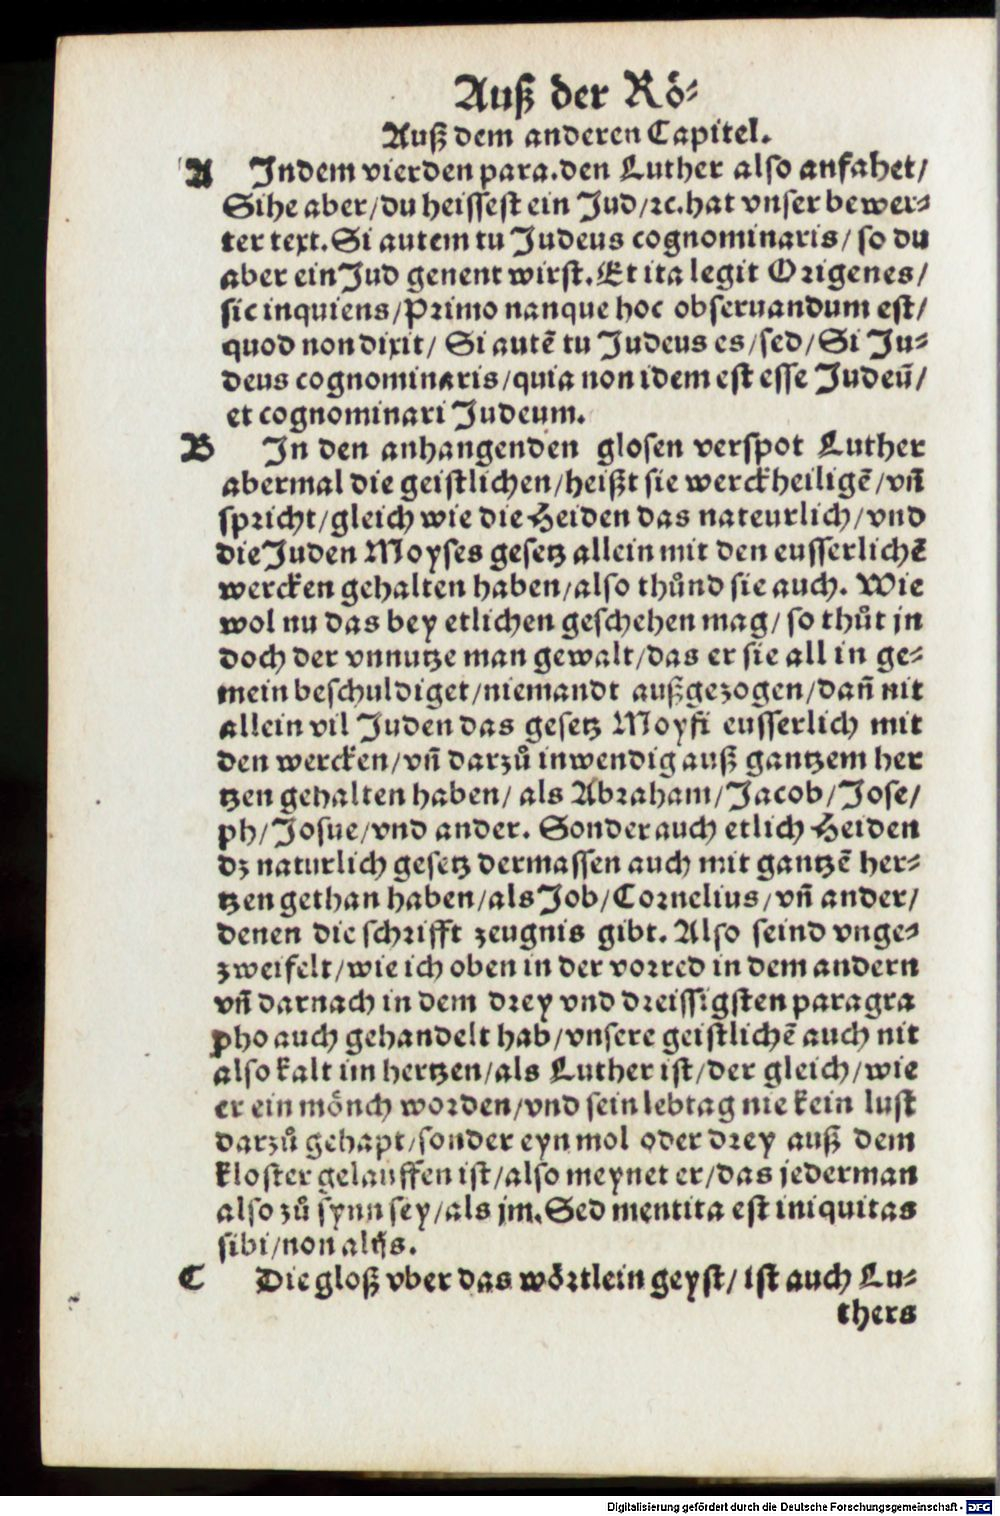 Auß der Rö⸗
Auß dem anderen Capitel.
A Jn dem vierden para. den Luther also anfahet/
Sihe aber/du heissest ein Jud/ꝛc. hat vnser bewer⸗
ter text. Si autem tu Judeus cognominaris/ so du
aber ein Jud genent wirst. Et ita legit Origenes/
sic inquiens/Primo nanque hoc obseruandum est/
quod non dixit/ Si autē tu Judeus es/sed/Si Ju⸗
deus cognominaris/quia non idem est esse Judeū/
et cognominari Judeum.
B Jn den anhangenden glosen verspot Luther
abermal die geistlichen/heißt sie werckheiligē/vñ
spricht/gleich wie die Heiden das nateurlich/vnd
die Juden Moyses gesetz allein mit den eusserlichē
wercken gehalten haben/also thůnd sie auch. Wie
wol nu das bey etlichen geschehen mag/ so thůt jn
doch der vnnutze man gewalt/das er sie all in ge⸗
mein beschuldiget/niemandt außgezogen/dañ nit
allein vil Juden das gesetz Moysi eusserlich mit
den wercken/vñ darzů inwendig auß gantzem her
tzen gehalten haben/ als Abraham/Jacob/Jose/
ph/Josue/vnd ander. Sonder auch etlich Heiden
dz naturlich gesetz dermassen auch mit gantzē her⸗
tzen gethan haben/als Job/Cornelius/vñ ander/
denen die schrifft zeugnis gibt. Also seind vnge⸗
zweifelt/wie ich oben in der vorred in dem andern
vñ darnach in dem drey vnd dreissigsten paragra
pho auch gehandelt hab/vnsere geistlichē auch nit
also kalt im hertzen/als Luther ist/der gleich/wie
er ein mönch worden/vnd sein lebtag nie kein lust
darzů gehapt/sonder eyn mol oder drey auß dem
kloster gelauffen ist/also meynet er/das jederman
also zů synn sey/als jm. Sed mentita est iniquitas
sibi/non alijs.
C Die gloß vber das wörtlein geyst/ ist auch Lu⸗
thers
Digitalisierung gefördert durch die Deutsche Forschungsgemeinschaft - DFG